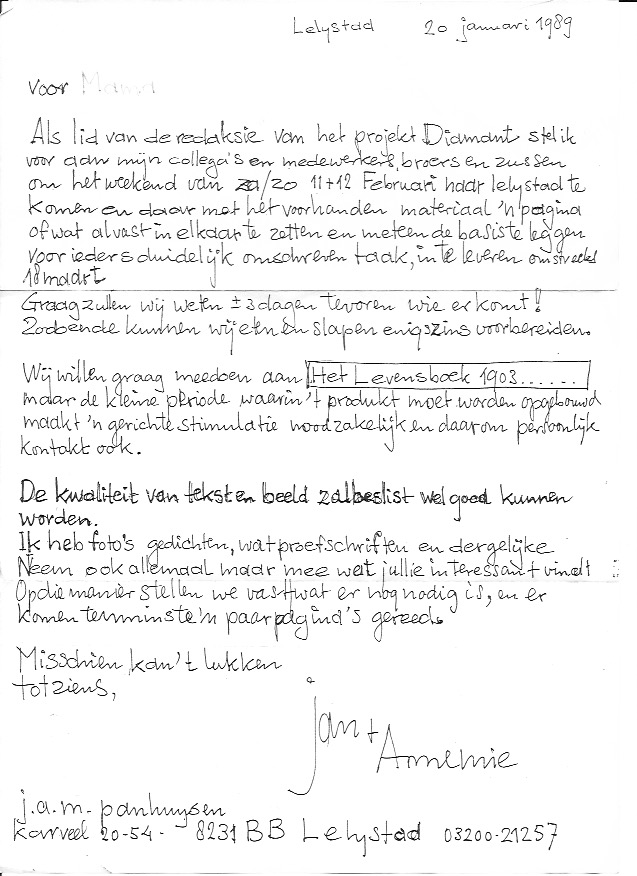 Lelystad 20 januari 1989
Voor Mama
Als lid van de redaksie van het projekt Diamant stel ik
voor aan mijn collega's en medewerkers, broers en zussen
om het weekend van za/zo 11+12 Februari naar lelystad te
komen en daar met het voorhanden materiaal 'n pagina
of wat alvast in elkaar te zetten en meteen de basis te leggen
voor ieders duidelijk omschreven taak, in te leveren omstreeks
18 maart.
Graag zullen wij weten ± 3 dagen tevoren wie er komt!
Zodoende kunnen wij eten en slapen enigszins voorbereiden.
Wij willen graag meedoen aan Het Levensboek 1903......
maar de kleine periode waarin 't produkt moet worden opgebouwd
maakt 'n gerichte stimulatie noodzakelijk en daarom persoonlijk
kontakt ook.
De kwaliteit van tekst en beeld zal beslist wel goed kunnen
worden.
Ik heb foto's gedichten, wat proefschriften en dergelijke
Neem ook allemaal maar mee wat jullie interessant vindt
Op die manier stellen we vast wat er nog nodig is, en er
komen tenminste 'n paar pagina's gereed.
Misschien kan 't lukken
tot ziens,
jan +
Annemie
j.a.m. panhuysen
Karveel 20-54 - 8231 BB Lelystad 03200-21257